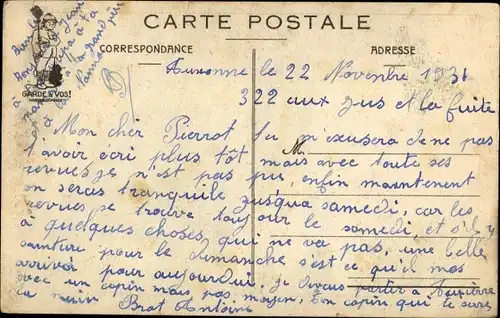 CARTE POSTALE
CORRESPONDANCE
ADRESSE
GARDE À VOS!
Auxonne le 22 Novembre 1931
322 aux jus et la fuite
Mon cher Pierrot tu m'exusera de ne pas
t avoir écri plus tôt mais avec toute ses
revues je n'est pas pus, enfin maintenent
on seras tranquile jusqua samedi, car les
revues se trouve toujour le samedi, et s'il y
à quelques choses qui ne va pas, une belle
pour le dimanche s'est ce qu'il mes
arrivér pour aujourdui, je devais partir à
avec un copin mais pas moyen, ton copin qui te serre
la main Brot Antoine